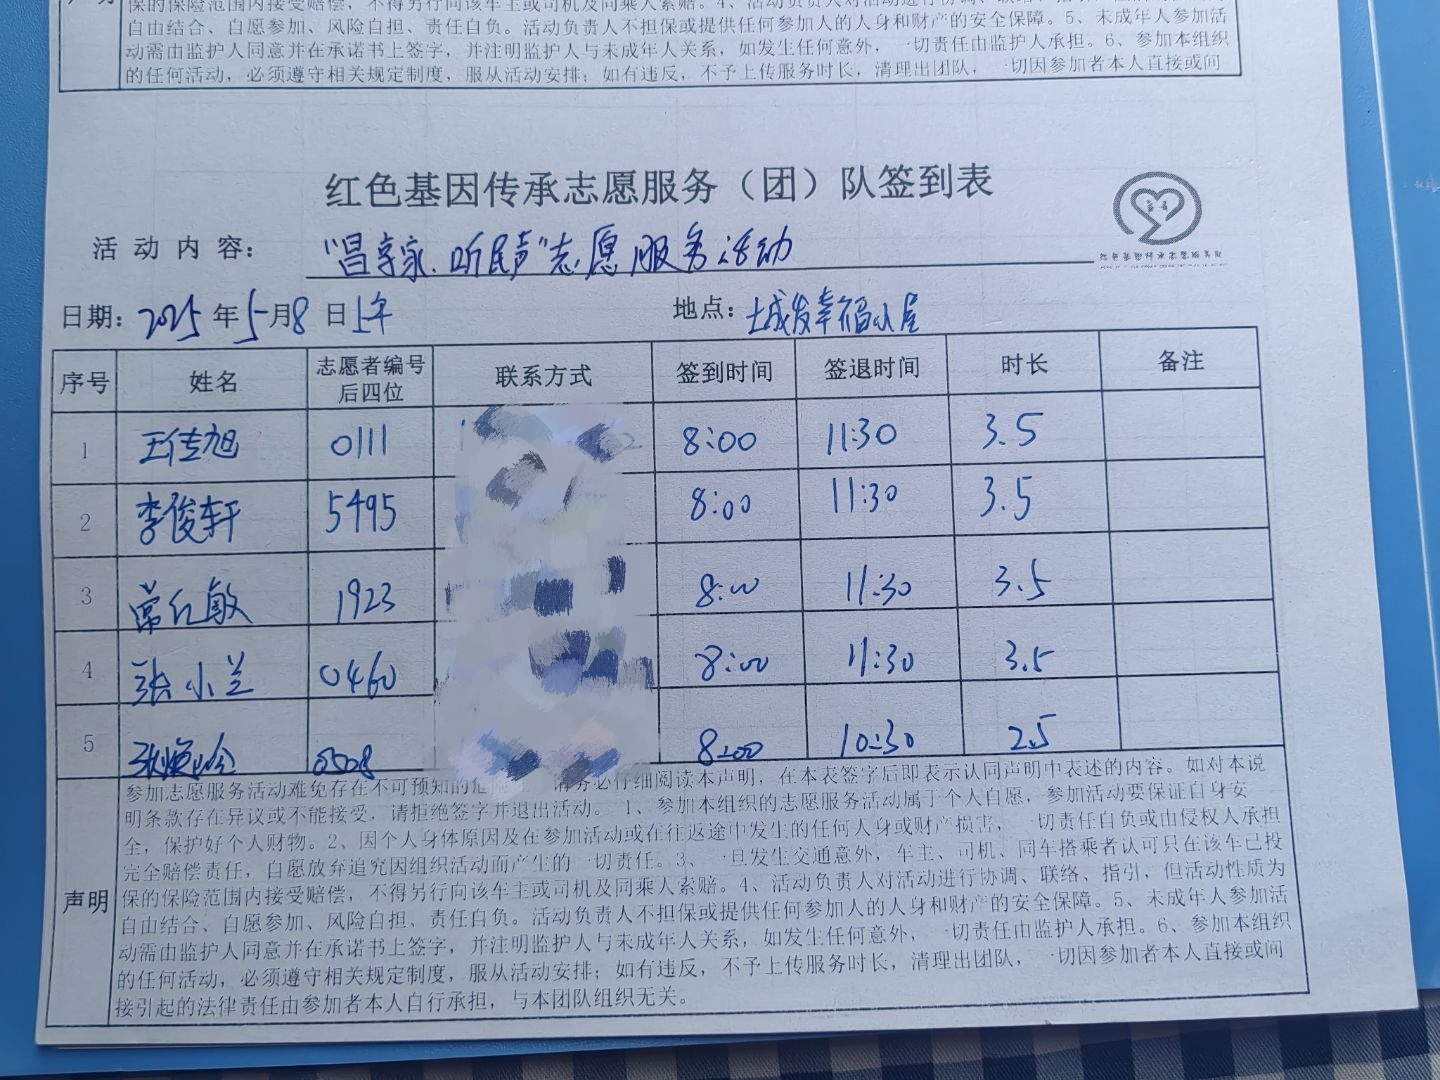 保的保险范围内接受赔偿，不得另行向该车主或司机及同乘人索赔。4、活动负责人对活动进行协调、联络
自由结合、自愿参加、风险自担、责任自负。活动负责人不担保或提供任何参加人的人身和财产的安全保障。5、未成年人参加活
动需由监护人同意并在承诺书上签字，并注明监护人与未成年人关系，如发生任何意外，一切责任由监护人承担。6、参加本组织
的任何活动，必须遵守相关规定制度，服从活动安排；如有违反，不予上传服务时长，清理出团队，一切因参加者本人直接或间
红色基因传承志愿服务（团）队签到表
活动内容：“昌享家.听民声”志愿服务活动
日期：2025年5月8日上午 地点：城发幸福小屋
序号 姓名 志愿者编号后四位 联系方式 签到时间 签退时间 时长 备注
1 王佳旭 0111 8:00 11:30 3.5
2 李俊轩 5495 8:00 11:30 3.5
3 常红敏 1923 8:00 11:30 3.5
4 张小兰 0460 8:00 11:30 3.5
5 0508 8:00 10:30 2.5
声明
参加志愿服务活动难免存在不可预知的危险 请务必仔细阅读本声明，在本表签字后即表示认同声明中表述的内容。如对本说
明条款存在异议或不能接受，请拒绝签字并退出活动。1、参加本组织的志愿服务活动属于个人自愿，参加活动要保证自身安
全，保护好个人财物。2、因个人身体原因及在参加活动或在往返途中发生的任何人身或财产损害，一切责任自负或由侵权人承担
完全赔偿责任，自愿放弃追究因组织活动而产生的一切责任。3、一旦发生交通意外，车主、司机、同车搭乘者认可只在该车已投
保的保险范围内接受赔偿，不得另行向该车主或司机及同乘人索赔。4、活动负责人对活动进行协调、联络、指引，但活动性质为
自由结合、自愿参加、风险自担、责任自负。活动负责人不担保或提供任何参加人的人身和财产的安全保障。5、未成年人参加活
动需由监护人同意并在承诺书上签字，并注明监护人与未成年人关系，如发生任何意外，一切责任由监护人承担。6、参加本组织
的任何活动，必须遵守相关规定制度，服从活动安排；如有违反，不予上传服务时长，清理出团队，一切因参加者本人直接或间
接引起的法律责任由参加者本人自行承担，与本团队组织无关。